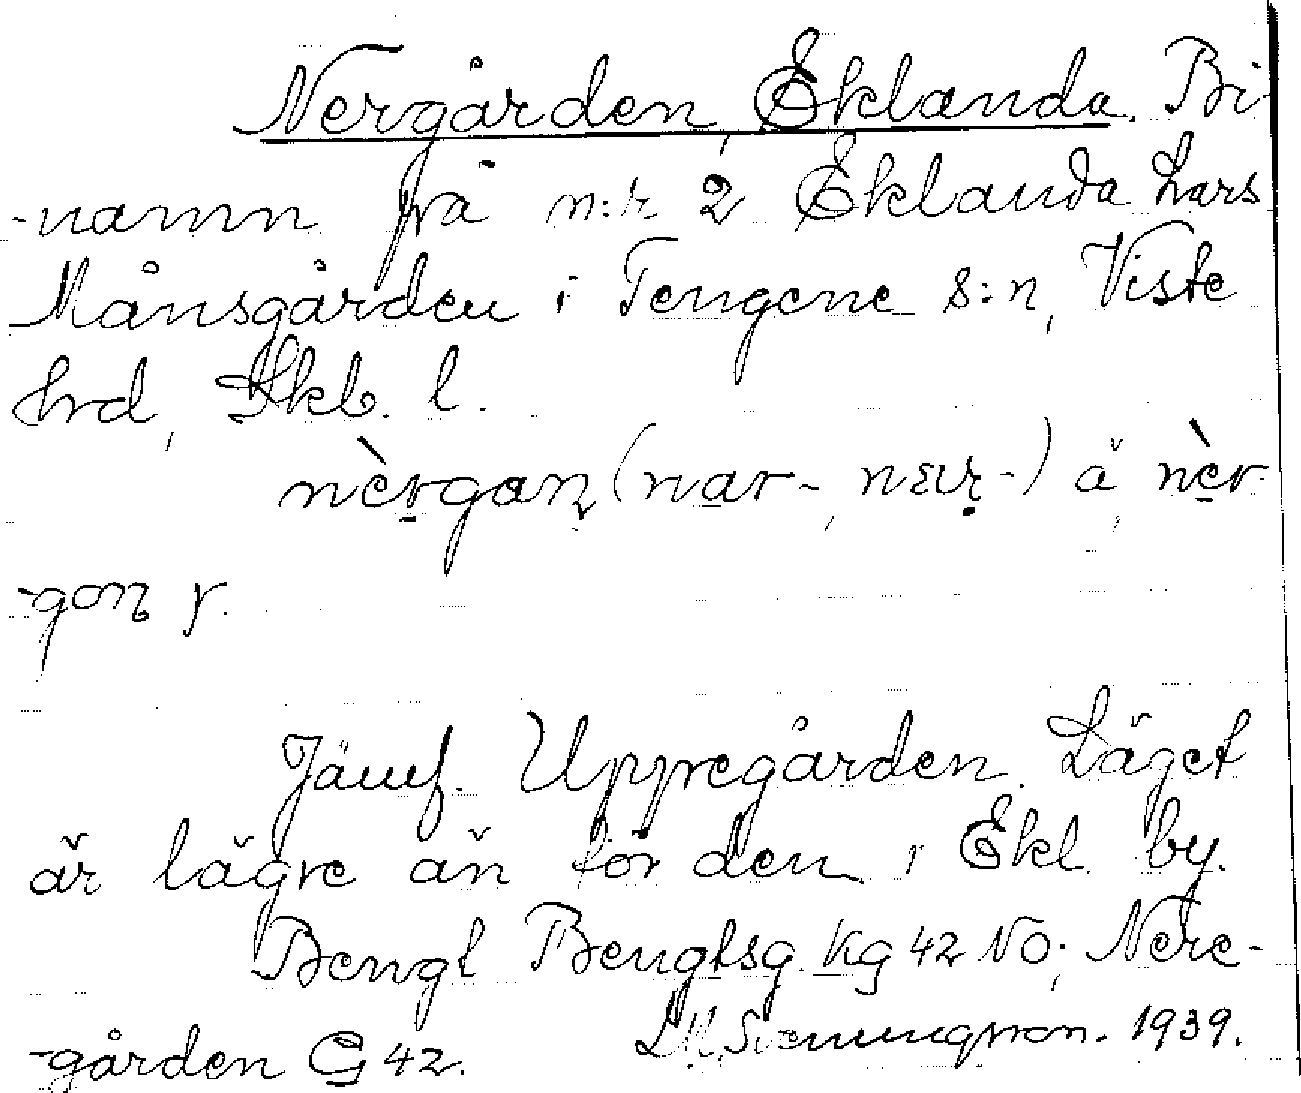 Nergården, Eklanda. Bi-
-namn på n:r 2 Eklanda Lars
Månsgården i Tengene s:n, Viste
hrd, Skb. l.
nèrgan (nar-, nær-) å nèr-
-gon r.
Jämf. Uppregården. Läget
är lägre än för den i Ekl. by.
Bengt Bengtsg. Kg 42 NO; Nere-
-gården G 42. 1939.